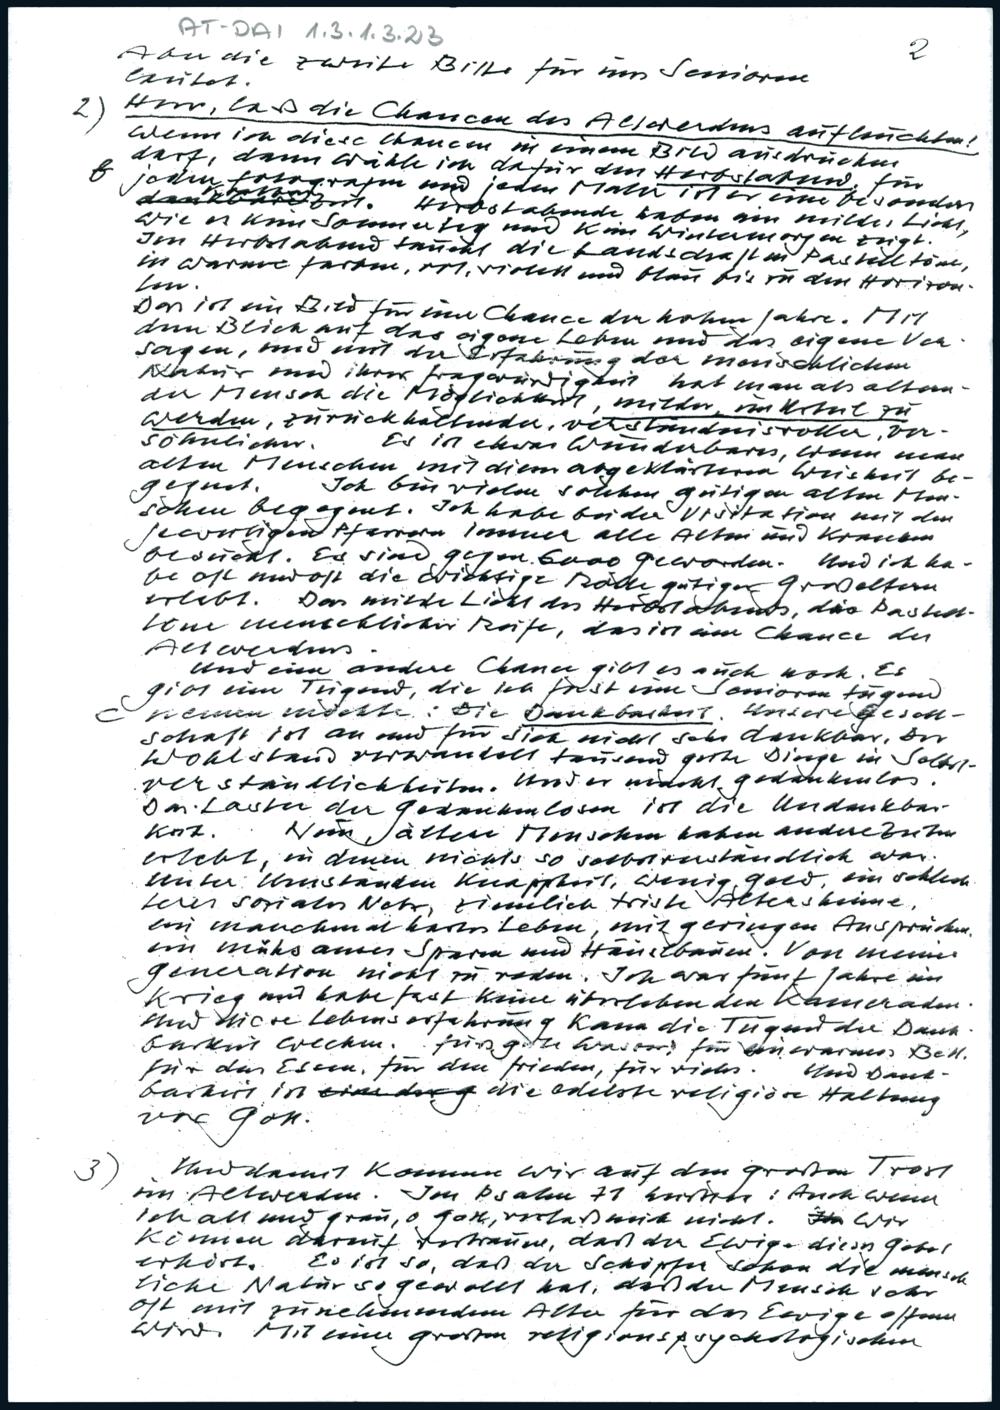 AT-DAI 1.3.1.3.23
2
Aber die zweite Bitte für uns Senioren
lautet.
2) Herr, laß die Chancen des Altwerdens aufleuchten!
Wenn ich diese Chancen in einem Bild ausdrücken
darf, dann wähle ich dafür den Herbstabend, für
b jeden Fotografen und jeden Maler ist er eine besonders
dankbare Zeit. Herbstabende haben ein mildes Licht,
wie es kein Sommertag und kein Wintermorgen zeigt.
Im Herbstabend taucht die Landschaft in Pastelltöne,
in warme Farben, rot, violett und blau bis zu den Horizon-
ten.
Das ist ein Bild für eine Chance der hohen Jahre. Mit
dem Blick auf das eigene Leben und das eigene Ver-
sagen, und mit der Erfahrung der menschlichen
Natur und ihrer Fragwürdigkeit hat man als altern-
der Mensch die Möglichkeit, milder im Urteil zu
werden, zurückhaltender, verständnisvoller, ver-
söhnlicher. Es ist etwas Wunderbares, wenn man
alten Menschen mit dieser abgeklärteren Weisheit be-
gegnet. Ich bin vielen solchen gütigen alten Men-
schen begegnet. Ich habe bei der Visitation mit den
jeweiligen Pfarrern immer alle Alten und Kranken
besucht. Es sind gegen 6000 geworden. Und ich ha-
be oft und oft die wichtige Rolle gütiger Großeltern
erlebt. Das milde Licht des Herbstabends, die Pastell-
töne menschlicher Reife, das ist eine Chance des
Altwerdens.
Und eine andere Chance gibt es auch noch. Es
gibt eine Tugend, die ich fast eine Seniorentugend
c nennen möchte: Die Dankbarkeit. Unsere Gesell-
schaft ist an und für sich nicht sehr dankbar. Der
Wohlstand verwandelt tausend gute Dinge in Selbst-
verständlichkeiten. Und er macht gedankenlos.
Das Laster der Gedankenlosen ist die Undankbar-
keit. Nun, ältere Menschen haben andere Zeiten
erlebt, in denen nichts so selbstverständlich war.
Unter Umständen Knappheit, wenig Geld, ein schlech-
teres soziales Netz, ziemlich triste Altersheime,
ein manchmal hartes Leben, mit geringen Ansprüchen,
ein mühsames Sparen und Häuslbauen. Von meiner
Generation nicht zu reden. Ich war fünf Jahre im
Krieg und habe fast keine überlebenden Kameraden.
Und diese Lebenserfahrung kann die Tugend der Dank-
barkeit wecken. Fürs gute Wasser, für ein warmes Bett.
für das Essen, für den Frieden, für vieles. Und Dank-
barkeit ist die edelste religiöse Haltung
vor Gott.
3) Und damit kommen wir auf den großen Trost
im Altwerden. Im Psalm 71 heißt es: Auch wenn
ich alt und grau, o Gott, verlaß mich nicht. Wir
können darauf vertrauen, daß der Ewige dieses Gebet
erhört. Es ist so, daß der Schöpfer schon die mensch-
liche Natur so gewollt hat, daß der Mensch sehr
oft mit zunehmendem Alter für das Ewige offener
wird. Mit einer großen religionspsychologischen